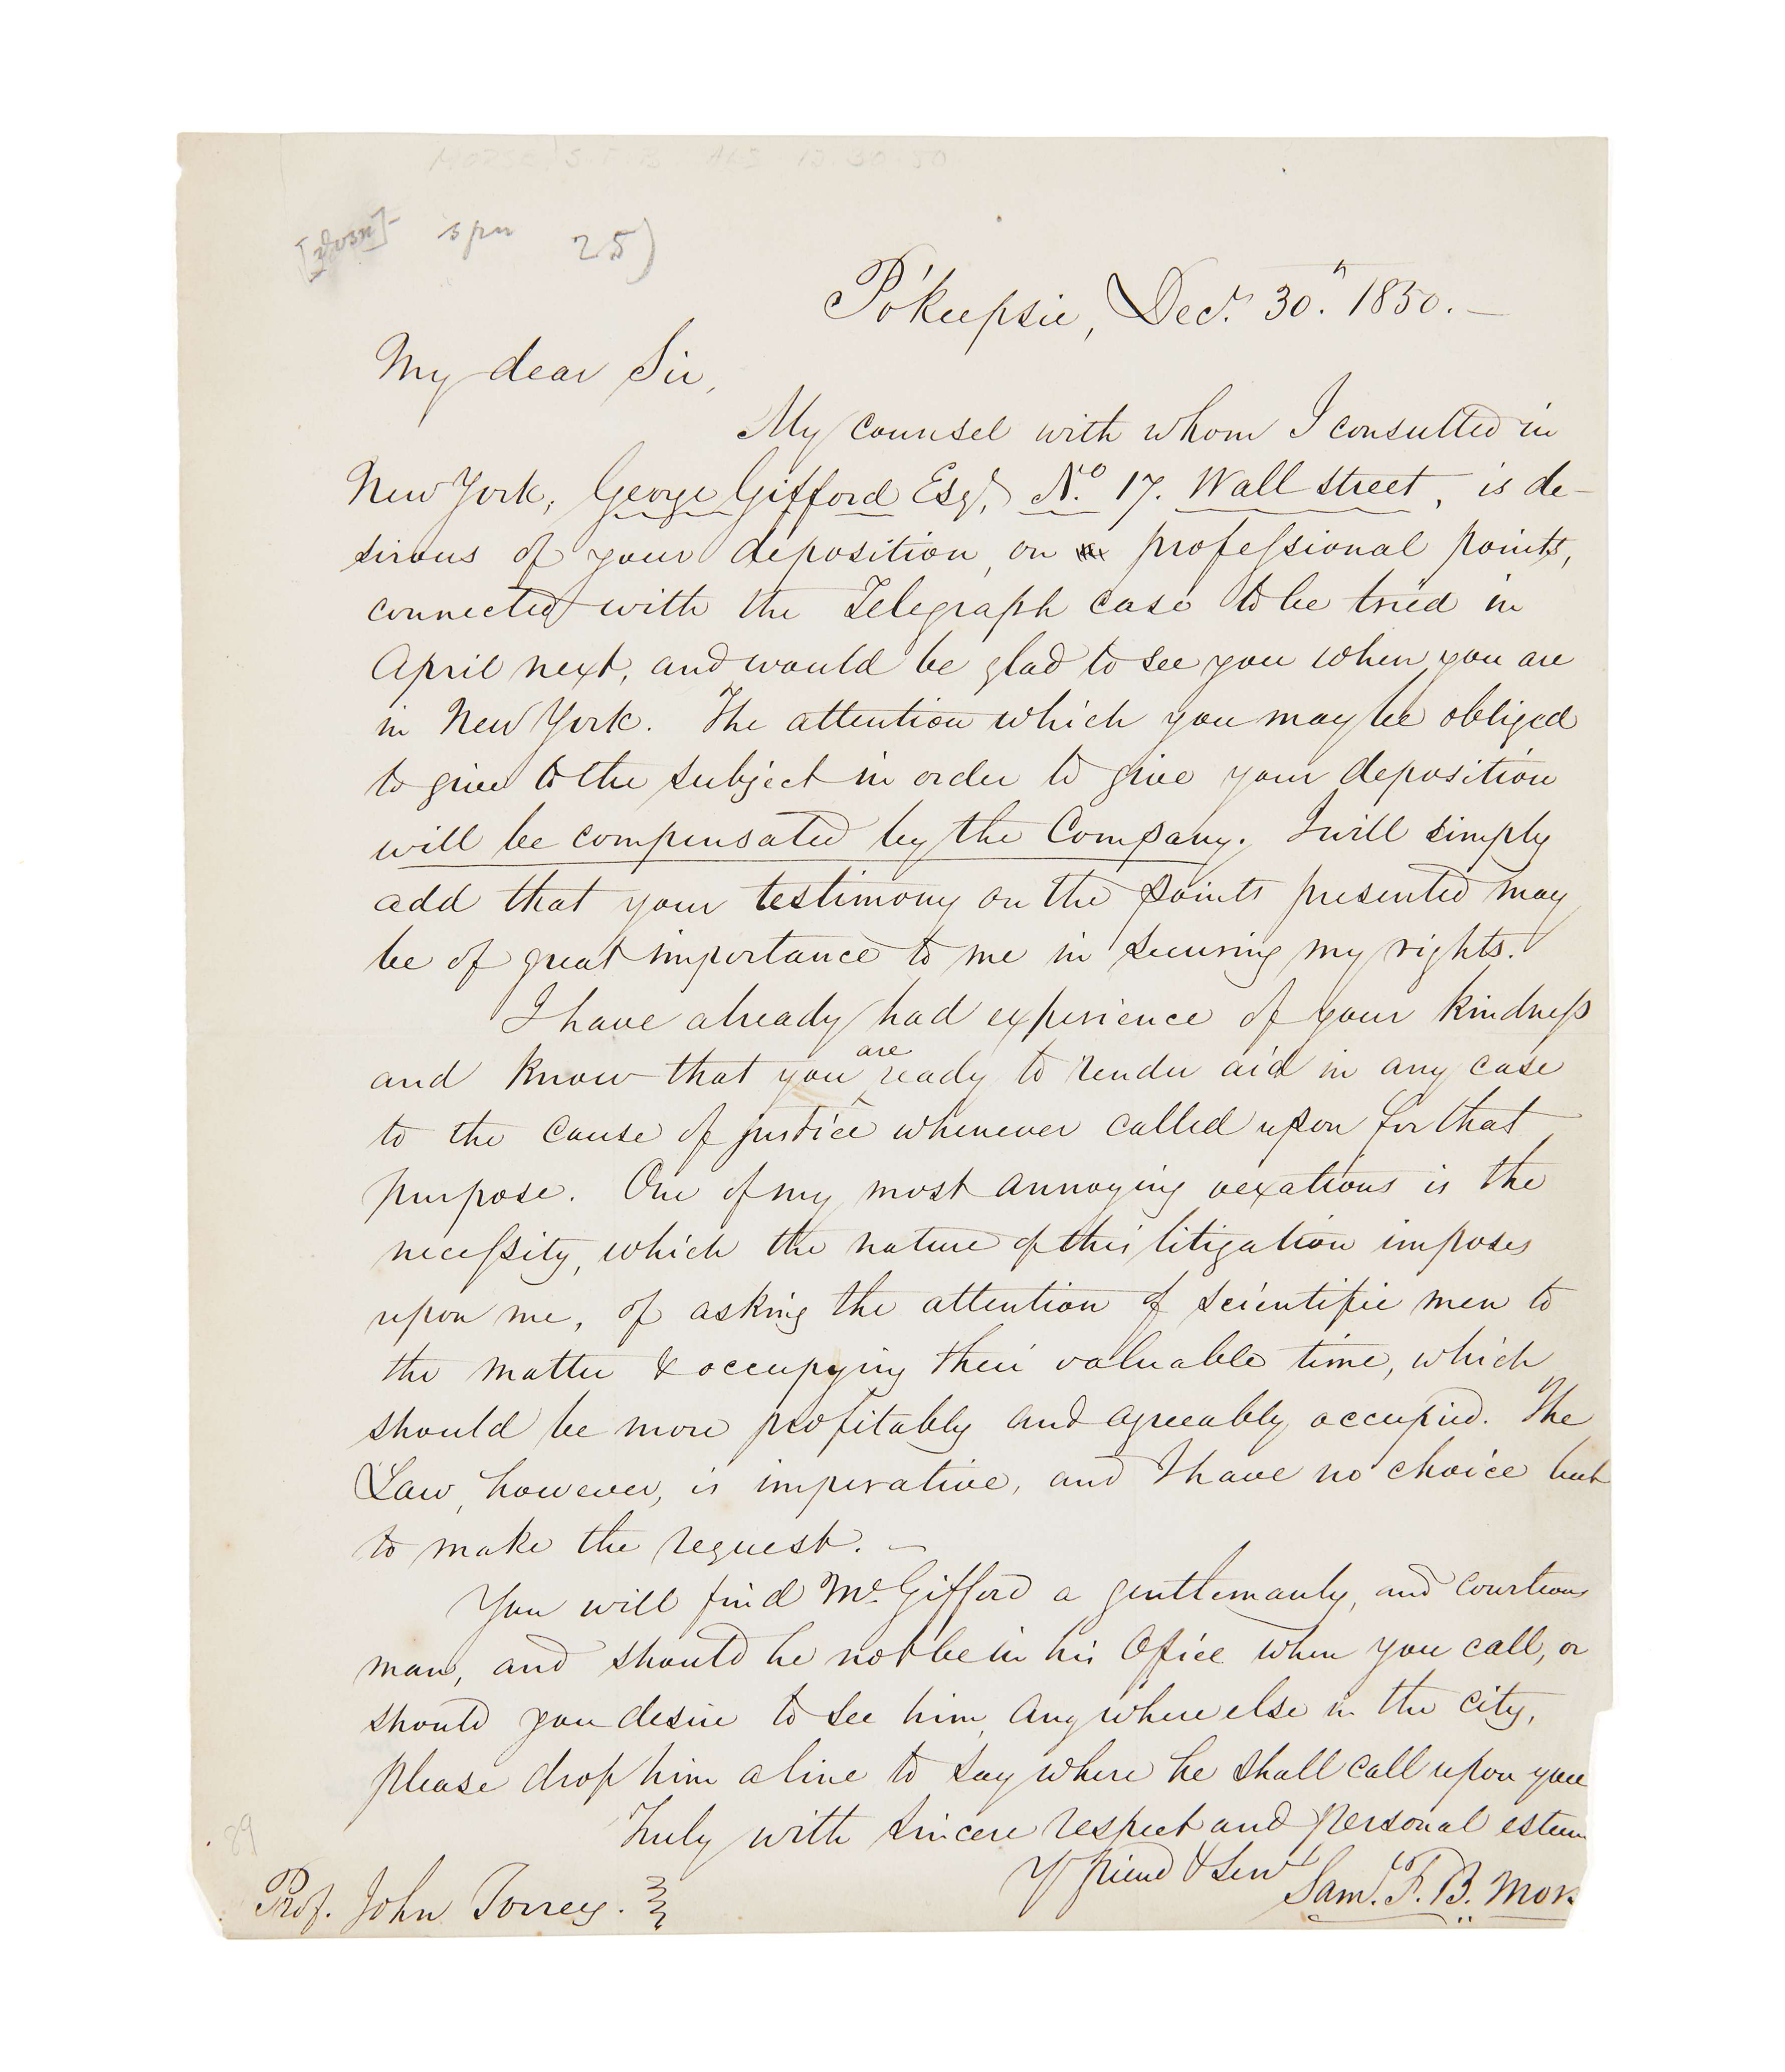 MORSE, S.F.B. ALS 12.30.50
25)
Po'keepsie, Decr. 30.h 1850. —
My dear Sir,
My counsel with whom I consulted in
New York, George Gifford Esqr, No. 17. Wall street, is de-
sirous of your deposition, on professional points,
connected with the Telegraph case to be tried in
April next, and would be glad to see you when you are
in New York. The attention which you may be obliged
to give to the subject in order to give your deposition
will be compensated by the Company. I will simply
add that your testimony on the points presented may
be of great importance to me in securing my rights.
I have already had experience of your kindness
and know that you are ready to render aid in any case
to the cause of justice whenever called upon for that
purpose. One of my most annoying vexations is the
necessity, which the nature of this litigation imposes
upon me, of asking the attention of scientific men to
the matter & occupying their valuable time, which
should be more profitably and agreeably occupied. The
Law, however, is imperative, and I have no choice but
to make the request. —
You will find Mr. Gifford a gentlemanly, and courteous
man, and should he not be in his Office when you call, or
should you desire to see him, any where else in the city,
please drop him a line to say where he shall call upon you
Truly with sincere respect and personal esteem
Yr friend & Servt
Saml. F. B. Mors
Prof. John Torrey.
89